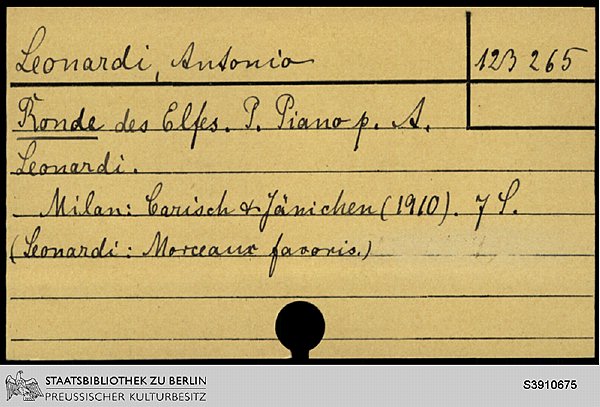 Leonardi, Antonio
123 265
Ronde des Elfes. P. Piano p. A.
Leonardi.
Milan: Carisch & Jänichen (1910). 7 S.
(Leonardi: Morceaux favoris.)
STAATSBIBLIOTHEK ZU BERLIN
PREUSSISCHER KULTURBESITZ
S3910675